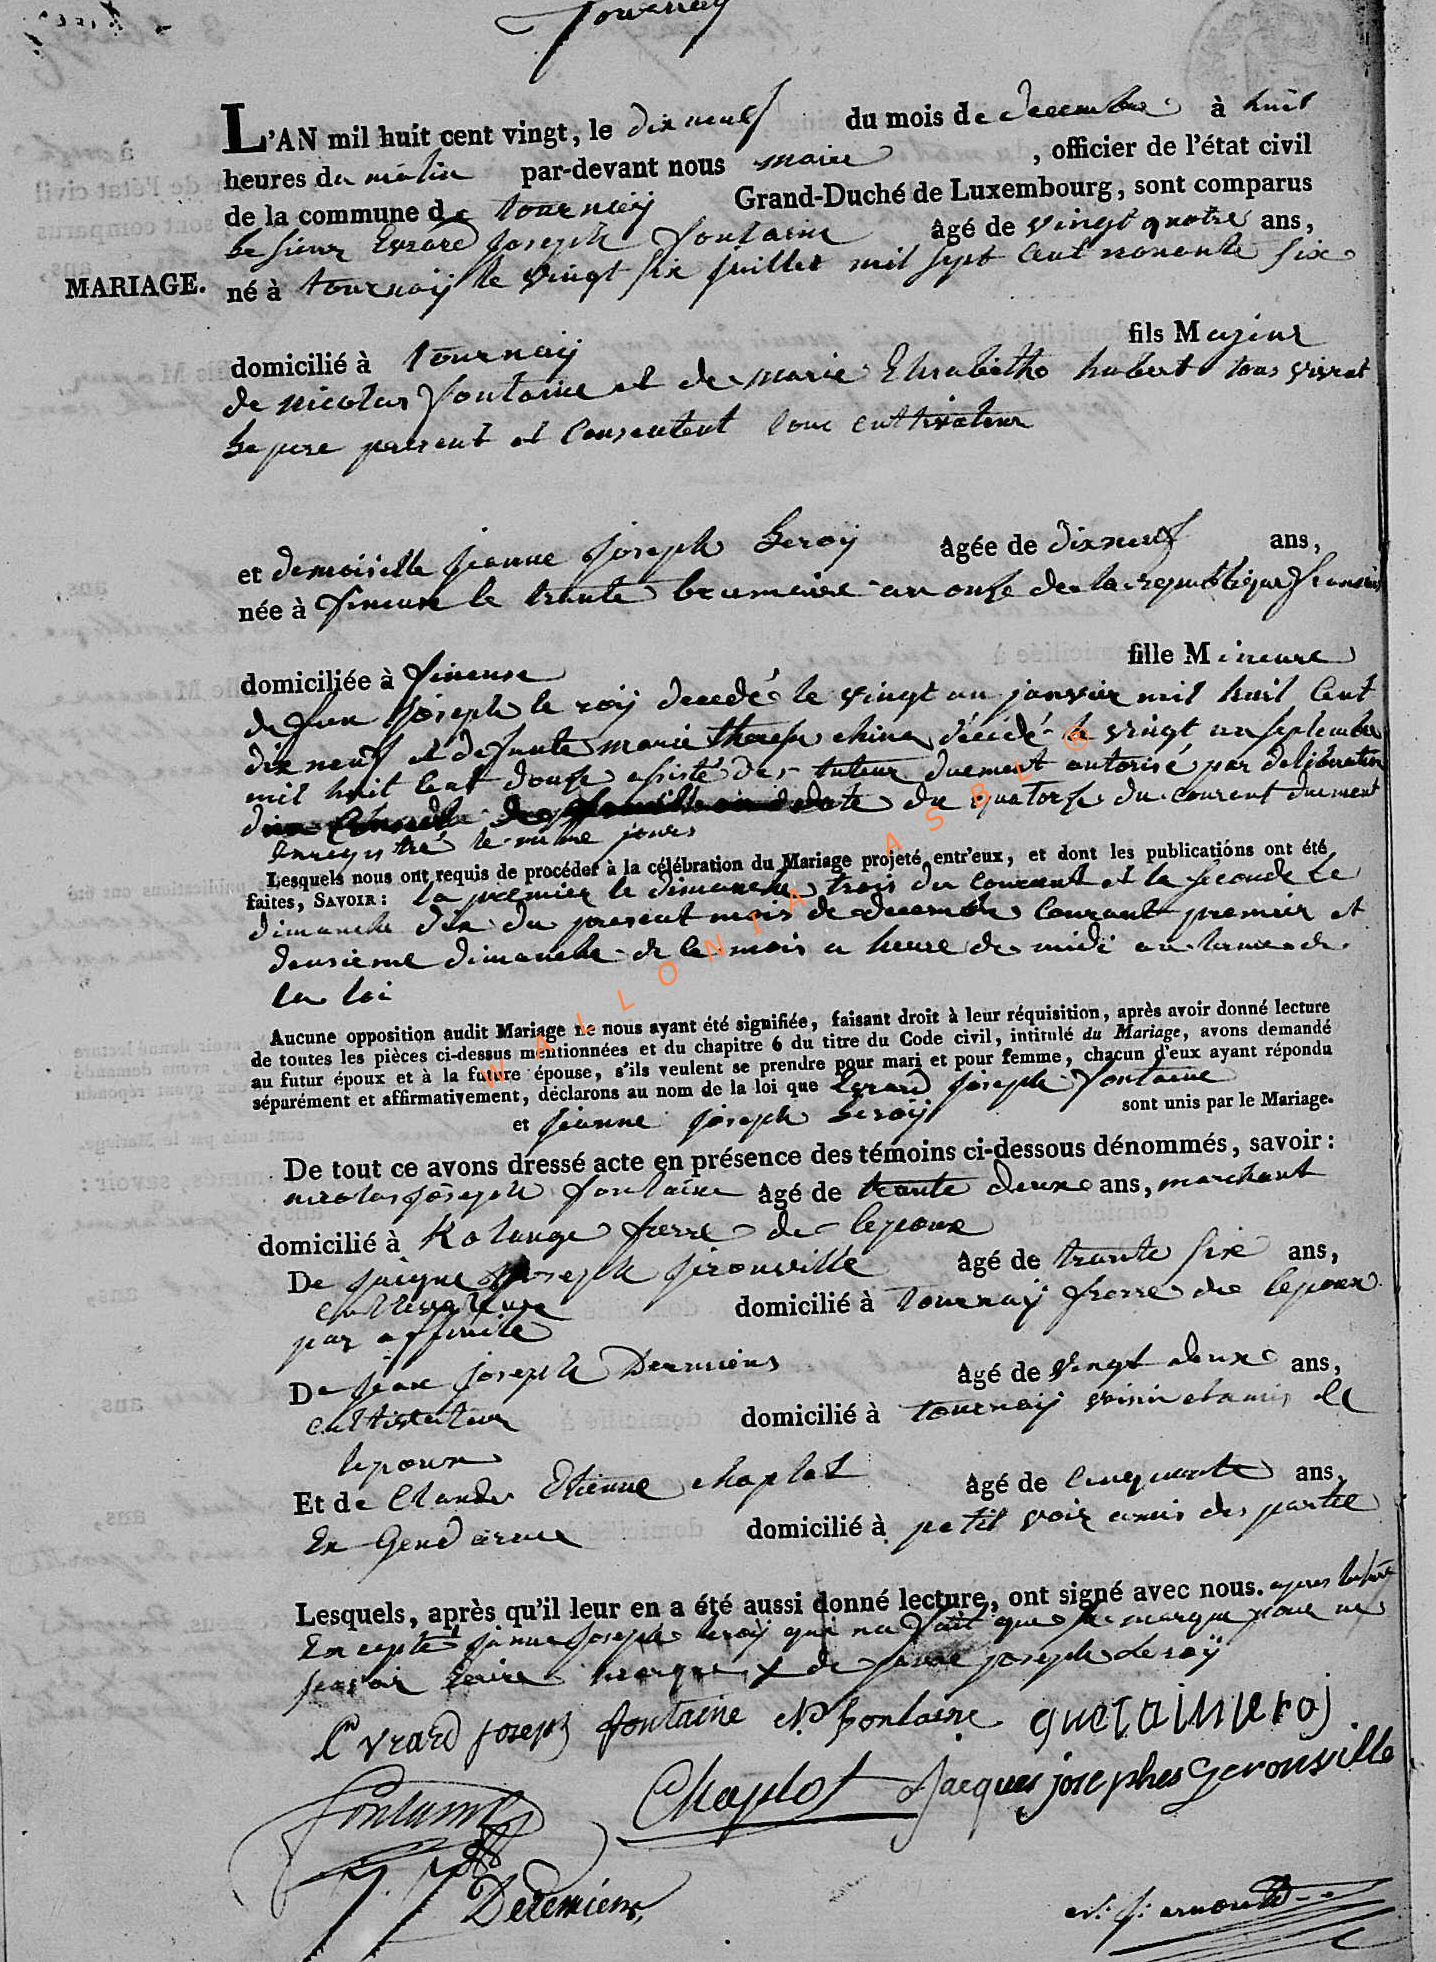 Tournay
L'AN mil huit cent vingt, le dix neuf du mois de decembre à huit
heures du matin par-devant nous maire, officier de l'état civil
de la commune de tournay Grand-Duché de Luxembourg, sont comparus
Le sieur Evrard joseph fontaine âgé de vingt quatre ans,
MARIAGE.
né à tournaÿ le vingt six juillet mil sept cent nonante six
domicilié à tournaÿ fils Majeur
de nicolas fontaine et de marie Elisabethe hubert tous vivat
Le pere present et consentent cultivateur
et demoiselle jeanne joseph Leroÿ âgée de dix neuf ans,
née à fineuse le trente brumaire an onze de la republique francais
domiciliée à fineuse fille Mineure
de feu joseph le roÿ decedé le vingt un janvier mil huit cent
dix neuf et defunte marie therese chine décédé le vingt un septembre
mil huit cent douze assisté de tuteur duement autorisé par deliberation
date du quatorze du courent duement
enregistré le même jours
Lesquels nous ont requis de procéder à la célébration du Mariage projeté entr'eux, et dont les publications ont été
faites, SAVOIR : la premier le dimanche trois du courant et la seconde le
dimanche dix du present mois de decembre courant premier et
deusieme dimanche de ce mois a heure de midi au terme de
la loi
Aucune opposition audit Mariage ne nous ayant été signifiée, faisant droit à leur réquisition, après avoir donné lecture
de toutes les pièces ci-dessus mentionnées et du chapitre 6 du titre du Code civil, intitulé du Mariage, avons demandé
au futur époux et à la future épouse, s'ils veulent se prendre pour mari et pour femme, chacun d'eux ayant répondu
séparément et affirmativement, déclarons au nom de la loi que Evrard joseph fontaine
et jeanne joseph Leroÿ sont unis par le Mariage.
De tout ce avons dressé acte en présence des témoins ci-dessous dénommés, savoir :
nicolas joseph fontaine âgé de trante deux ans, marchant
domicilié à Kolenge frere de lepoux
De jacque joseph jerouville âgé de trante six ans,
cultivateur domicilié à tournaÿ frere de lepoux
par affinité
De jean joseph Deremiens âgé de vingt deux ans,
cultivateur domicilié à tournaÿ voisin et amis de
lepoux
Et de Claude Etienne chaplot âgé de cinquante ans,
Ex Gendarme domicilié à petit voir amis des partie
Lesquels, après qu'il leur en a été aussi donné lecture, ont signé avec nous. apres lecture
Excepté jeanne joseph leroÿ qui na fait que sa marque pour ne
savoir ecrire marque X de jeanne joseph Leroÿ
Evrard joseph fontaine N fontaine
Fontaine Chaplot Jacques josephes Gerouville
J. J. Deremiens
WALLONIA ASBL ®